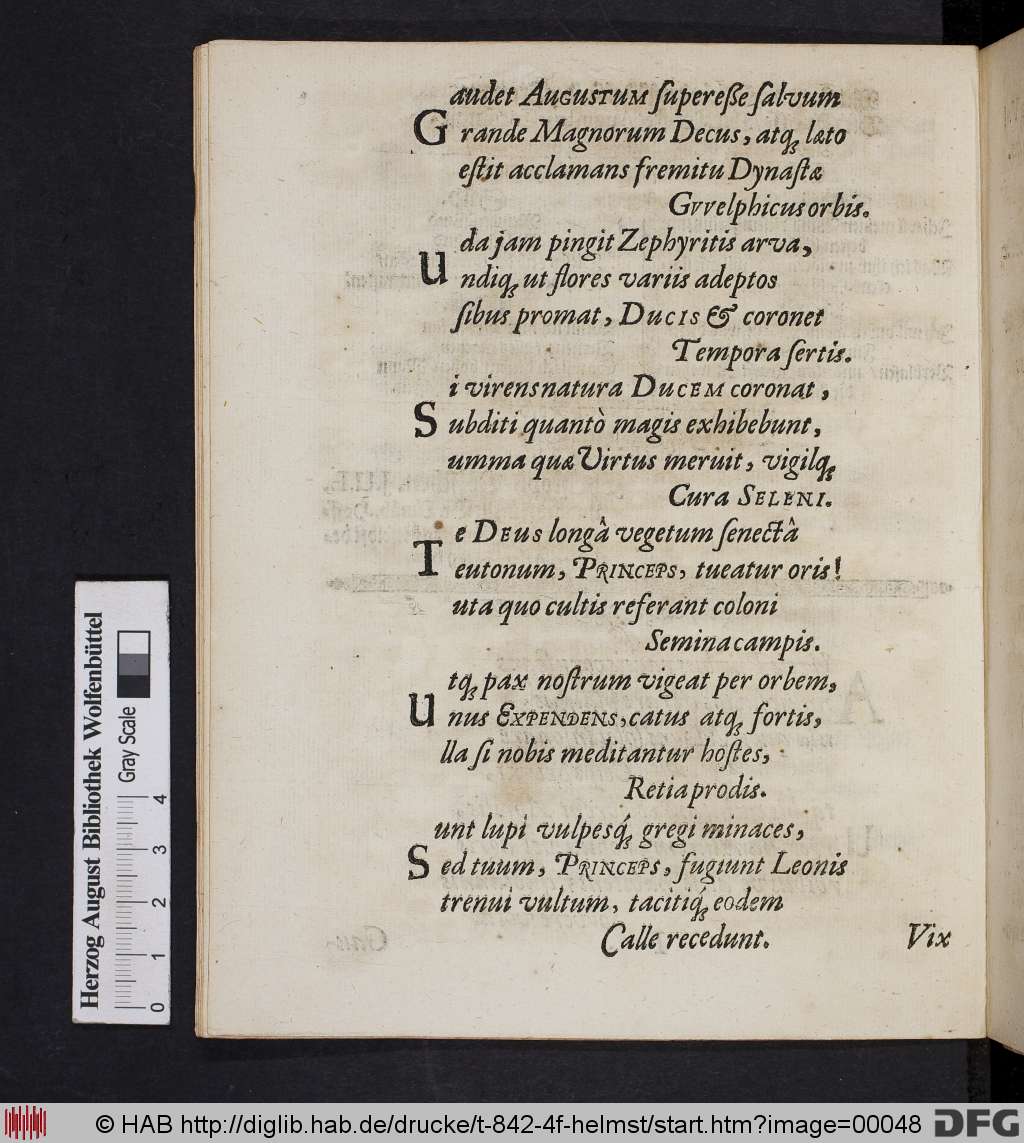 audet AUGUSTUM ſupereße ſalvum
G rande Magnorum Decus, atq; læto
eſtit acclamans fremitu Dynaſtæ
Gvvelphicus orbis.
da jam pingit Zephyritis arva,
U ndiq; ut flores variis adeptos
ſibus promat, DUCIS & coronet
Tempora ſertis.
i virens natura DUCEM coronat,
S ubditi quantò magis exhibebunt,
umma quæ Virtus meruit, vigilq;
Cura SELENI.
e DEUS longâ vegetum ſenectâ
T eutonum, PRINCEPS, tueatur oris!
uta quo cultis referant coloni
Semina campis.
tq; pax noſtrum vigeat per orbem,
U nus EXPENDENS, catus atq; fortis,
lla ſi nobis meditantur hoſtes,
Retia prodis.
unt lupi vulpesq́; gregi minaces,
S ed tuum, PRINCEPS, fugiunt Leonis
trenui vultum, tacitiq́; eodem
Calle recedunt.
Vix
Herzog August Bibliothek Wolfenbüttel
Gray Scale
0 1 2 3 4
© HAB http://diglib.hab.de/drucke/t-842-4f-helmst/start.htm?image=00048
DFG